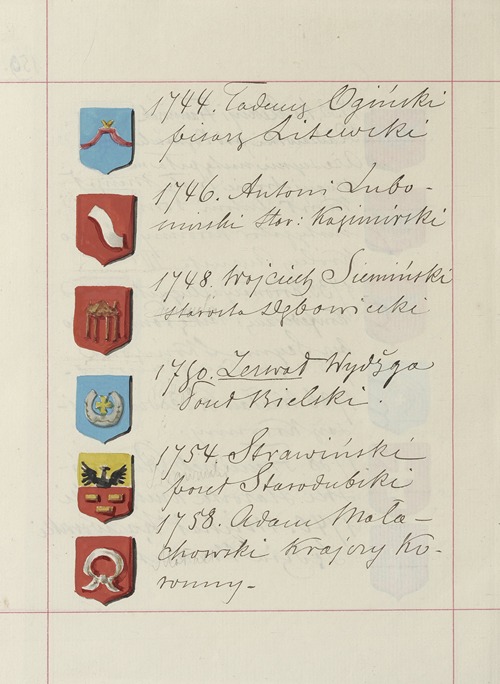 1744. Tadeusz Ogiński
pisarz Litewski
1746. Antoni Lubo-
mirski star: Kazimirski
1748. Wojciech Siemiński
starosta Dębowiecki
1750. Zerwał Wydżga
Posel Bielski.
1754. Strawiński
poseł Starodubski
1758. Adam Mała-
chowski Krajczy Ko-
ronny-